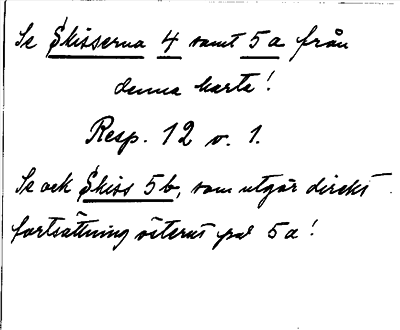 Se Skisserna 4 samt 5a från
denna karta!
Resp. 12 v. 1.
Se ock Skiss 5b, som utgör direkt
fortsättning österut på 5a!